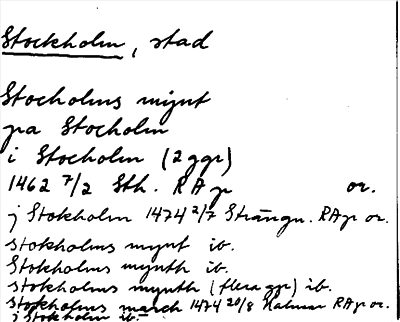 Stockholm, stad
Stocholms mynt
pa Stocholm
i Stocholm (2 ggr)
1462 7/2 Sth. RAp or.
j Stokholm 1474 2/7 Strängn. RAp or.
stokholms mynt ib.
Stokholms mynth ib.
stokholms mynth (flera ggr) ib.
Stokholms march 1474 20/8 Kalmar RAp or.
j Stokholm ib.